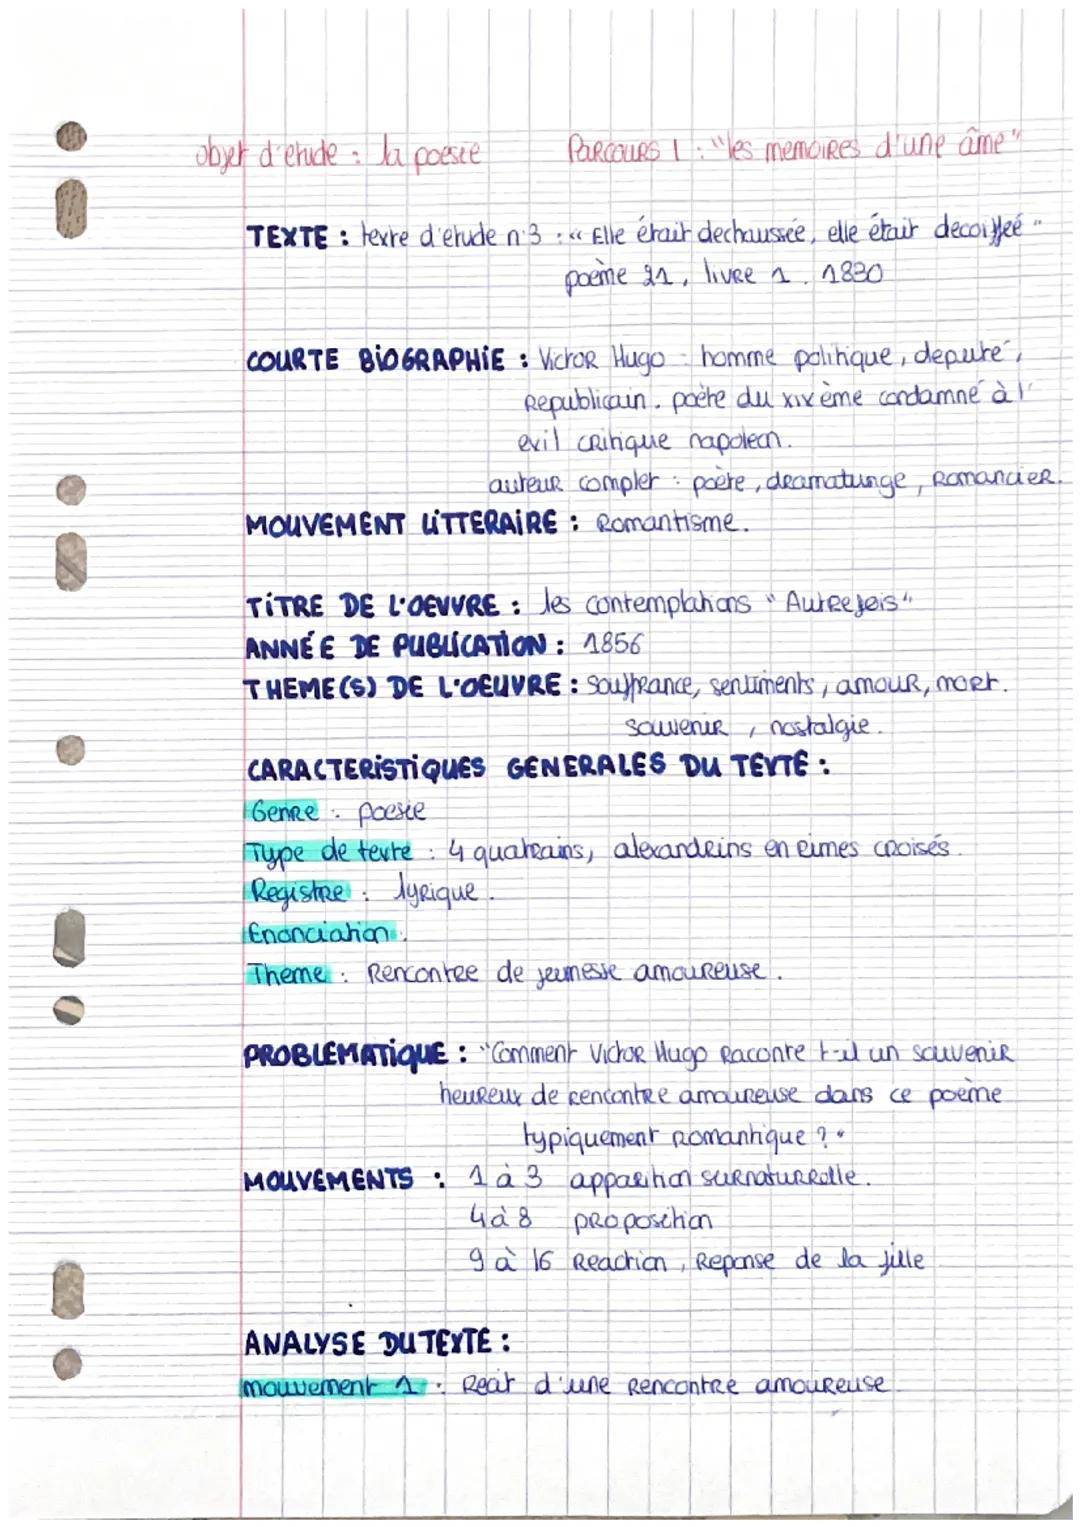 objet d'etude : la poesie Parcours 1 : "les memoires d'une âme"
TEXTE : texte d'etude n°3 : « Elle était dechaussée, elle était decoiffeé "
poème 21, livre 1. 1830
COURTE BIOGRAPHIE : Victor Hugo : homme politique, deputé,
Republicain. poète du xixème condamné à l'
exil critique napoleon.
auteur complet : poète, dramatunge, Romancier.
MOUVEMENT LITTERAIRE : Romantisme.
TITRE DE L'OEVVRE : les contemplations "Autrefois"
ANNÉE DE PUBLICATION : 1856
THEME(S) DE L'OEUVRE : souffrance, sentiments, amour, mort.
souvenir, nostalgie.
CARACTERISTIQUES GENERALES DU TEXTE :
Genre : poesie
Type de texte : 4 quatrains, alexandrins en rimes croisés.
Registre : lyrique.
Enonciation :
Theme : Rencontre de jeunesse amoureuse.
PROBLEMATIQUE : "Comment Victor Hugo Raconte t-il un souvenir
heureux de rencontre amoureuse dans ce poème
typiquement romantique ?"
MOUVEMENTS : 1 à 3 apparition surnaturrelle.
4 à 8 proposition
9 à 16 Reaction, Reponse de la fille
ANALYSE DU TEXTE :
mouvement 1 : Recit d'une rencontre amoureuse.